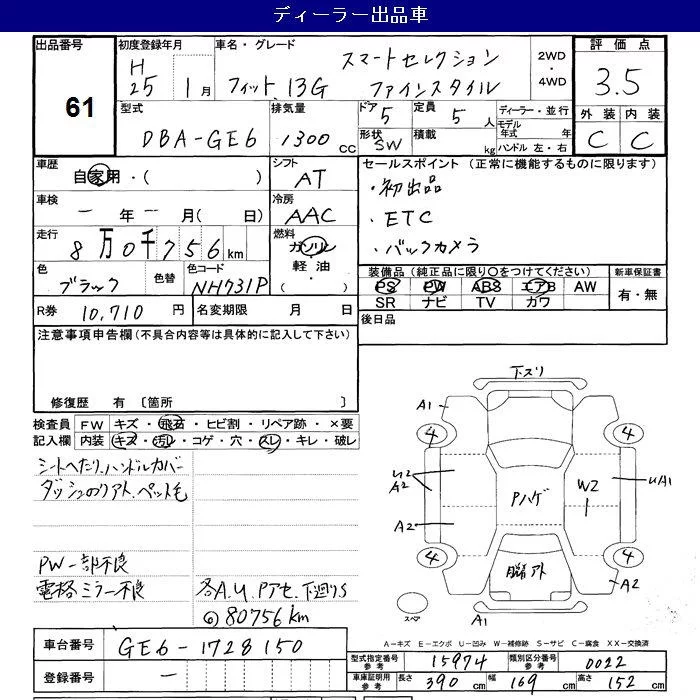 ディーラー出品車
出品番号 61
初度登録年月 H 25 年 1 月
車名・グレード フィット 13G スマートセレクション ファインスタイル
2WD ・ 4WD
評価点 3.5
外装 C 内装 C
型式 DBA-GE6
排気量 1300 cc
ドア 5 形状 SW
定員 5 人 積載 kg
ディーラー・並行
モデル年式 年
ハンドル 左・右
車歴 自家用・( )
シフト AT
車検 ー 年 ー 月( 日)
冷房 AAC
走行 8万0千756 km
燃料 ガソリン 軽油 ・ ( )
色 ブラック 色替 色コード NH731P
R券 10,710 円 名変期限 月 日
セールスポイント (正常に機能するものに限ります)
・初出品
・ETC
・バックカメラ
装備品(純正品に限り○をつけてください) 新車保証書
PS PW ABS エアB AW 有・無
SR ナビ TV カワ
後日品
注意事項申告欄(不具合内容等は具体的に記入して下さい)
修復歴 有 〔箇所 〕
検査員 FW キズ ・ 飛石 ・ ヒビ割 ・ リペア跡 ・ ×要
記入欄 内装 キズ ・ 汚レ ・ コゲ ・ 穴 ・ スレ ・ キレ ・ 破レ
シートへたり、ハンドルカバー
ダッシュのりアト、ペット毛
PW一部不良
電格ミラー不良 各A.U, Pアセ、下廻りS
◎80756km
下スリ
A1
4 4
U2 A2 Pハゲ W2 UA1
A2
4 4
A2
スペア A1
A-キズ E-エクボ U-凹み W-補修跡 S-サビ C-腐食 XX-交換済
車台番号 GE6-1728150
登録番号 ー
型式指定番号 参考 15974 類別区分番号 参考 0022
車庫証明用 参考 長さ 390 cm 幅 169 cm 高さ 152 cm